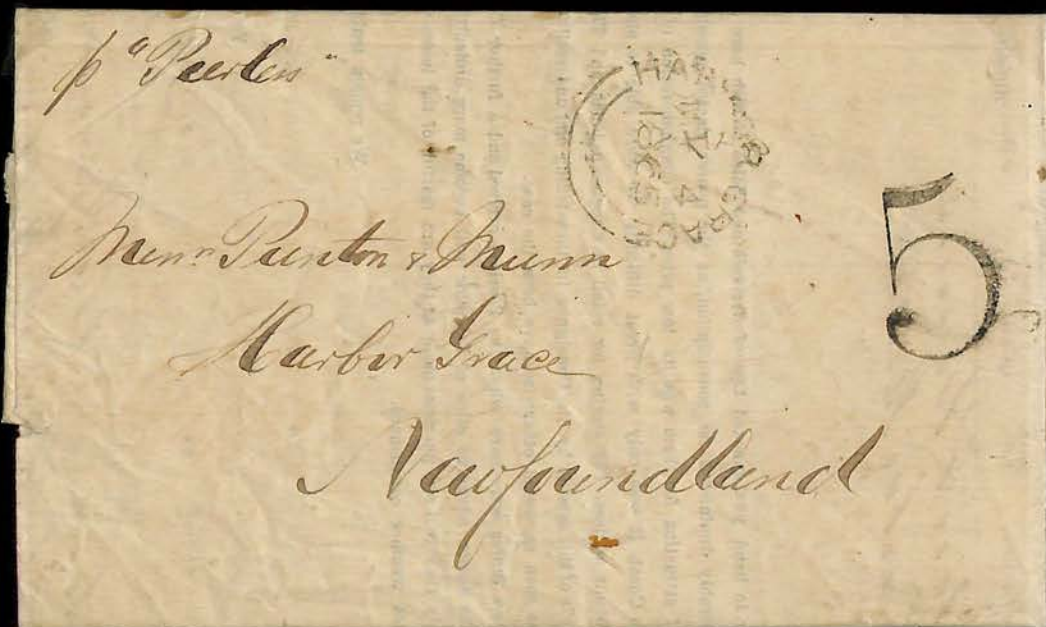 p "Peerless"
HARBOR GRACE
MY 4
1865
5
Messrs Punton & Munn
Harbor Grace
Newfoundland